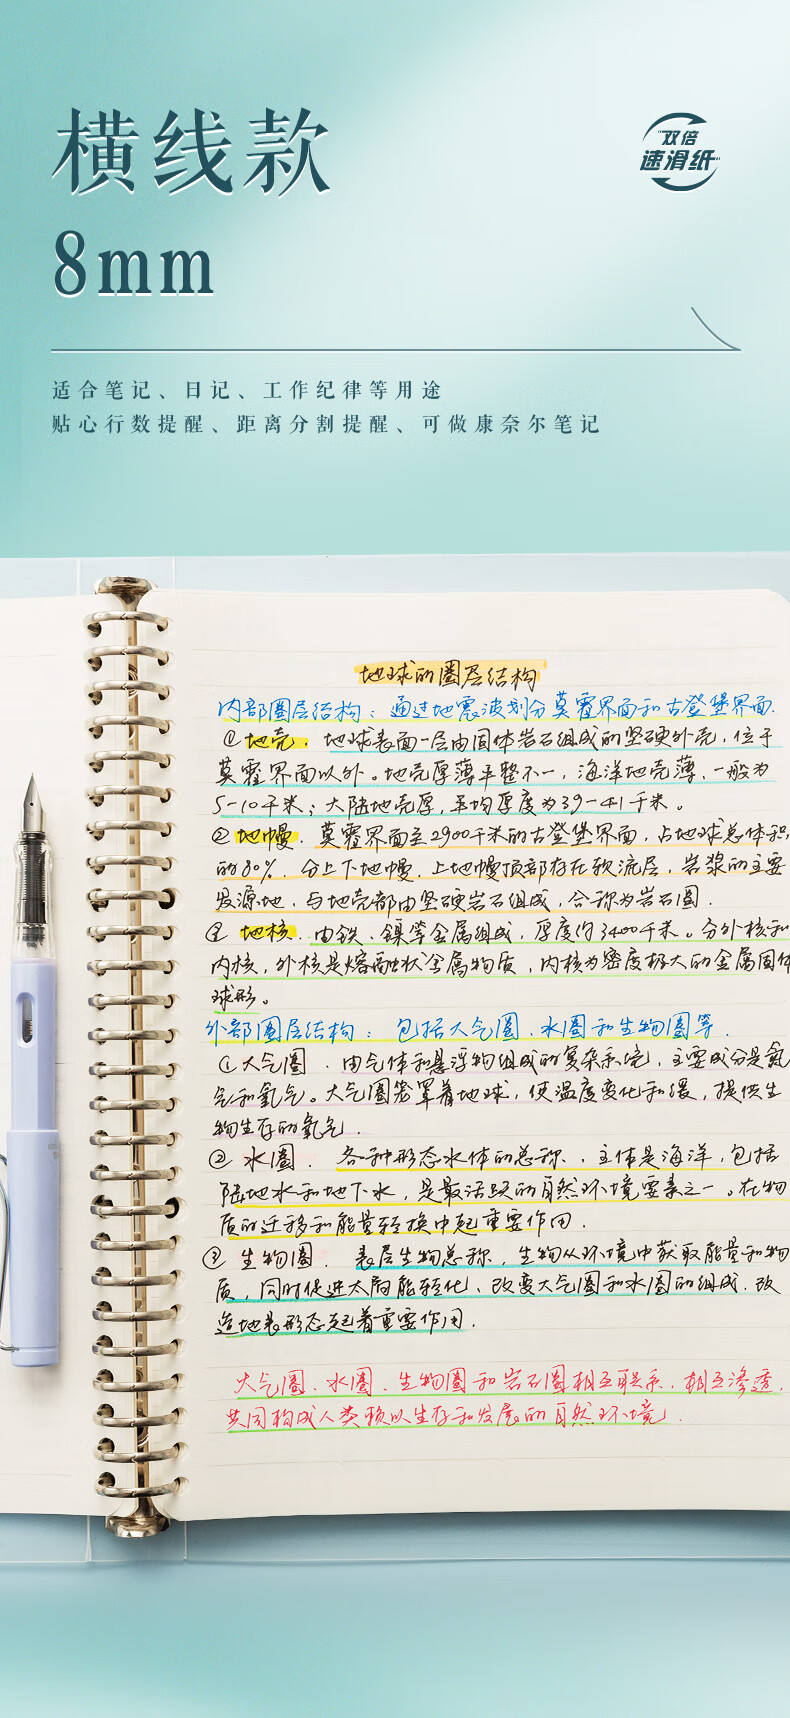 横线款
8mm
"双倍
速滑纸"
适合笔记、日记、工作纪律等用途
贴心行数提醒、距离分割提醒、可做康奈尔笔记
地球的圈层结构
内部圈层结构：通过地震波划分莫霍界面和古登堡界面.
①地壳. 地球表面一层由固体岩石组成的坚硬外壳，位于
莫霍界面以外。地壳厚薄平整不一，海洋地壳薄，一般为
5-10千米；大陆地壳厚，平均厚度为39-41千米。
②地幔. 莫霍界面至2900千米的古登堡界面，占地球总体积
的80%. 分上下地幔. 上地幔顶部存在软流层，岩浆的主要
发源地，与地壳都由坚硬岩石组成，合称为岩石圈.
③ 地核. 由铁、镍等金属组成，厚度约3400千米。分外核和
内核，外核是熔融状金属物质，内核为密度极大的金属固体
球形。
外部圈层结构：包括大气圈、水圈和生物圈等.
①大气圈. 由气体和悬浮物组成的复杂系统，主要成分是氮
气和氧气。大气圈笼罩着地球，使温度变化和缓，提供生
物生存的氧气.
② 水圈. 各种形态水体的总称.，主体是海洋，包括
陆地水和地下水，是最活跃的自然环境要素之一。在物
质的迁移和能量转换中起重要作用.
③ 生物圈. 表层生物总称，生物从环境中获取能量和物
质，同时促进太阳能转化、改变大气圈和水圈的组成. 改
造地表形态起着重要作用.
大气圈、水圈、生物圈和岩石圈相互联系，相互渗透，
共同构成人类赖以生存和发展的自然环境.